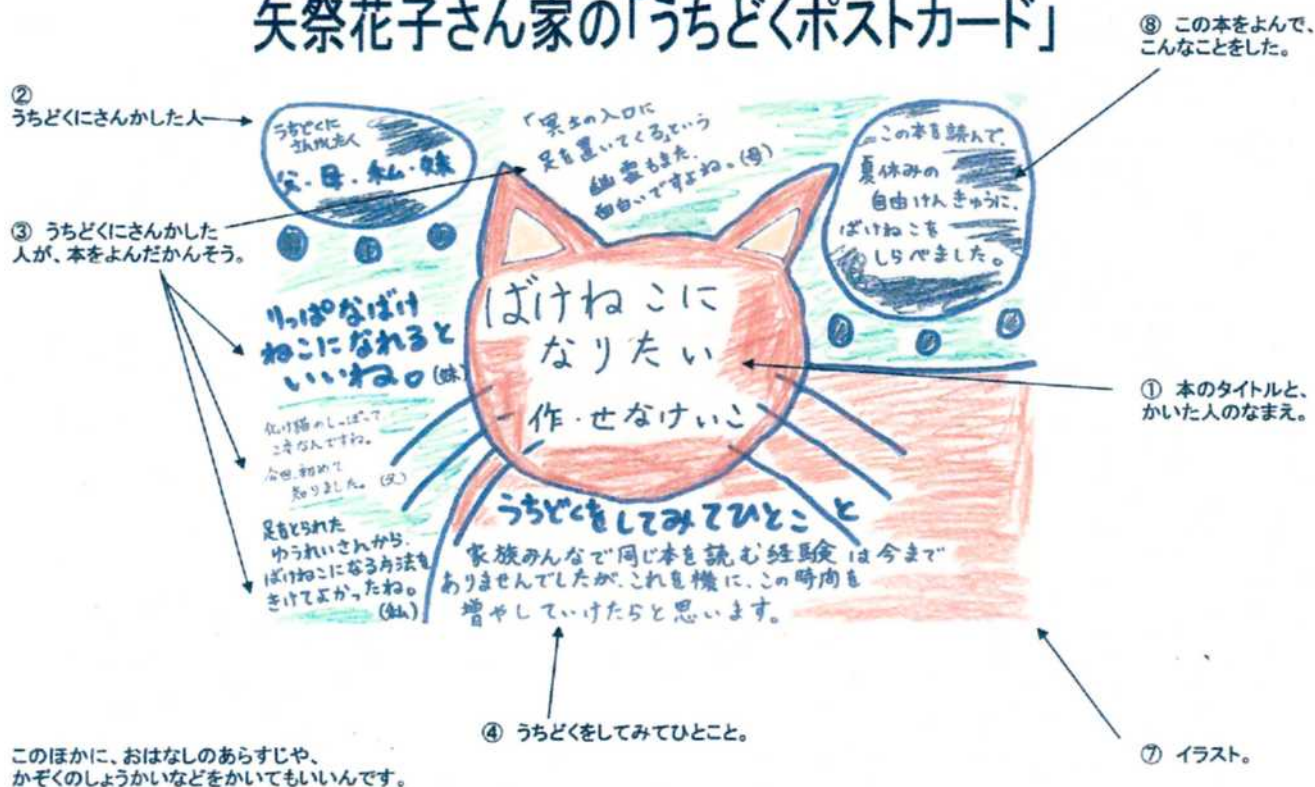 矢祭花子さん家の「うちどくポストカード」
⑧ この本をよんで、
こんなことをした。
②
うちどくにさんかした人
③ うちどくにさんかした
人が、本をよんだかんそう。
うちどくに
さんかした人
父・母・私・妹
「冥土の入口に
足を置いてくる」という
幽霊もまた、
面白いですよね。(母)
この本を読んで、
夏休みの
自由けんきゅうに、
ばけねこを
しらべました。
りっぱなばけ
ねこになれると
いいね。(妹)
化け猫のしっぽって
二本なんですね。
今回、初めて
知りました。(父)
足をとられた
ゆうれいさんから、
ばけねこになる方法を
きけてよかったね。
(私)
ばけねこに
なりたい
作・せなけいこ
① 本のタイトルと、
かいた人のなまえ。
うちどくをしてみてひとこと
家族みんなで同じ本を読む経験は今まで
ありませんでしたが、これを機に、この時間を
増やしていけたらと思います。
④ うちどくをしてみてひとこと。
⑦ イラスト。
このほかに、おはなしのあらすじや、
かぞくのしょうかいなどをかいてもいいんです。